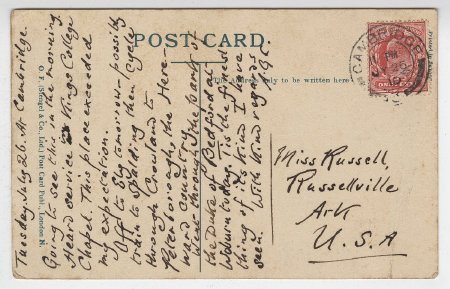 POST CARD.
The address only to be written here.
Tuesday, July 26. At Cambridge.
Going to see this in the morning
Heard service in Kings College
Chapel. This place exceeded
my expectation.
Off to Ely tomorrow possibly
train to Spalding then cycle
through Crowland to
Peterborough, the Here-
ward country.
Went through the park of
the Duke of Bedford at
Woburn today. Tis the finest
thing of its kind I have
seen. With kind regards
CAMBRIDGE
ONE PENNY
Miss Russell,
Russellville
Ark
U.S.A